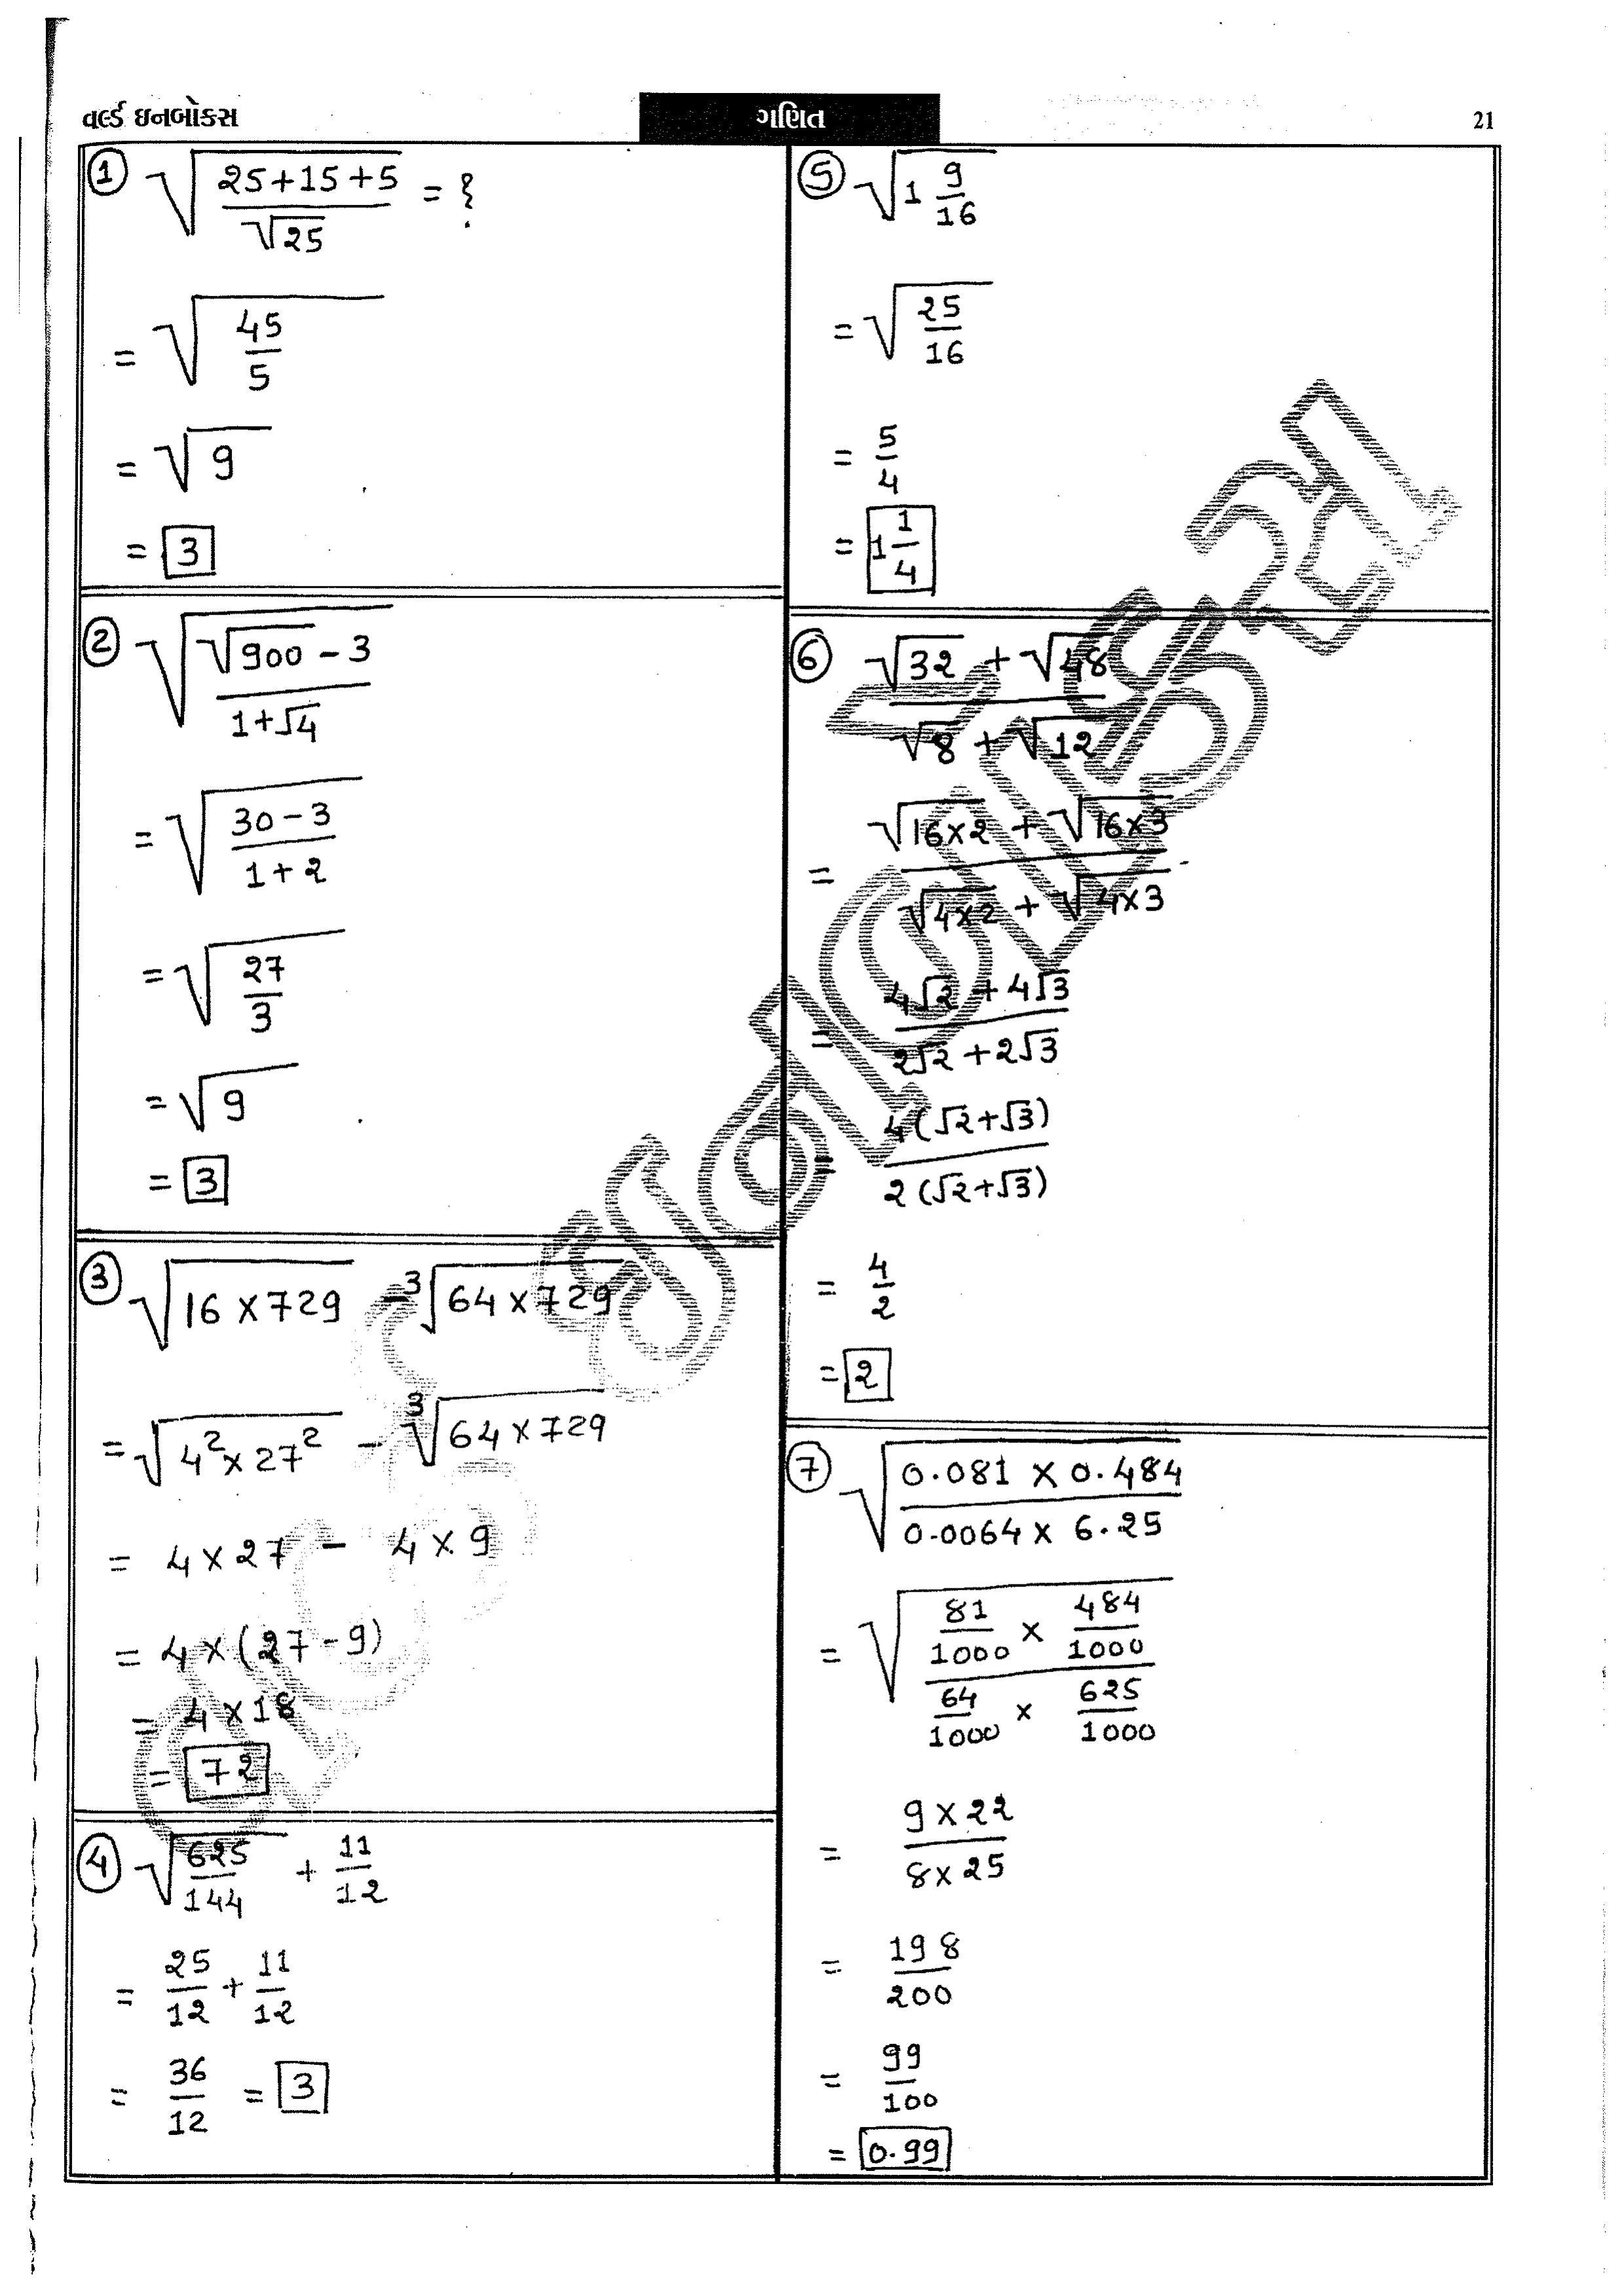 વર્લ્ડ ઇનબોક્સ
ગણિત
21
① √((25+15+5)/√25) = ?
= √(45/5)
= √9
= 3
② √((√900 - 3)/(1+√4))
= √((30-3)/(1+2))
= √(27/3)
= √9
= 3
③ √(16×729) - ³√(64×729)
= √(4²×27²) - ³√(64×729)
= 4×27 - 4×9
= 4×(27-9)
= 4×18
= 72
④ √(625/144) + 11/12
= 25/12 + 11/12
= 36/12 = 3
⑤ √(1 9/16)
= √(25/16)
= 5/4
= 1 1/4
⑥ (√32 + √48)/(√8 + √12)
= (√(16×2) + √(16×3))/(√(4×2) + √(4×3))
= (4√2 + 4√3)/(2√2 + 2√3)
= 4(√2+√3)/2(√2+√3)
= 4/2
= 2
⑦ √((0.081 × 0.484)/(0.0064 × 6.25))
= √((81/1000 × 484/1000)/(64/1000 × 625/1000))
= (9×22)/(8×25)
= 198/200
= 99/100
= 0.99